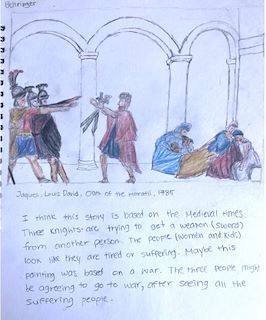 Behringer
Jaques, Louis David, Oath of the Horatii, 1785
I think this story is based on the Medieval times.
Three knights are trying to get a weapon (swords)
from another person. The people (women and kids)
look like they are tired or suffering. Maybe this
painting was based on a war. The three people might
be agreeing to go to war, after seeing all the
suffering people.